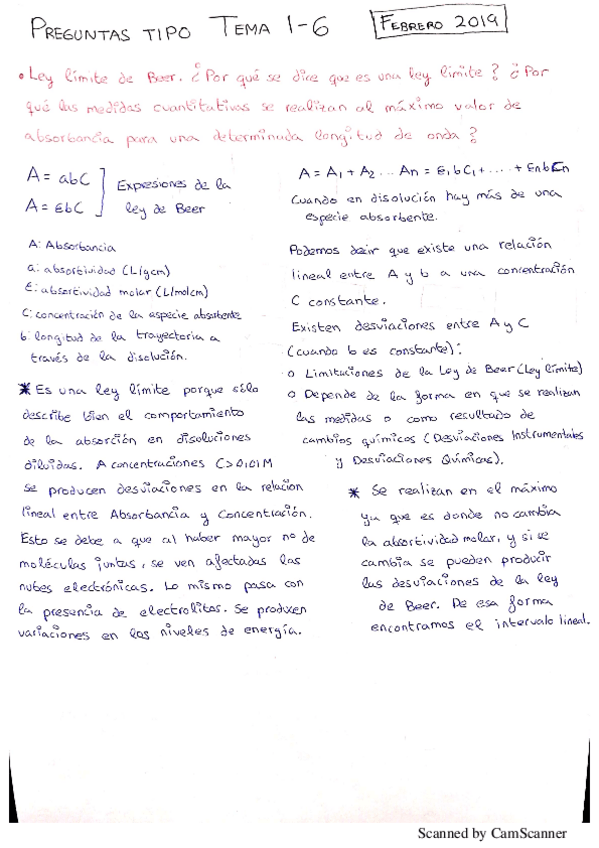 PREGUNTAS TIPO TEMA 1-6 FEBRERO 2019
• Ley límite de Beer. ¿Por qué se dice que es una ley límite? ¿Por
qué las medidas cuantitativas se realizan al máximo valor de
absorbancia para una determinada longitud de onda?
A = abC
A = εbC
Expresiones de la
ley de Beer
A: Absorbancia
a: absortividad (L/gcm)
ε: absortividad molar (L/molcm)
C: concentración de la especie absorbente
b: longitud de la trayectoria a
través de la disolución.
* Es una ley límite porque sólo
describe bien el comportamiento
de la absorción en disoluciones
diluidas. A concentraciones C>0,01M
se producen desviaciones en la relación
lineal entre Absorbancia y Concentración.
Esto se debe a que al haber mayor no de
moléculas juntas, se ven afectadas las
nubes electrónicas. Lo mismo pasa con
la presencia de electrolitos. Se producen
variaciones en los niveles de energía.
A = A1 + A2 ... An = ε1bC1 + ... + εnbCn
Cuando en disolución hay más de una
especie absorbente.
Podemos decir que existe una relación
lineal entre A y b a una concentración
C constante.
Existen desviaciones entre A y C
(cuando b es constante):
o Limitaciones de la Ley de Beer (Ley límite)
o Depende de la forma en que se realizan
las medidas o como resultado de
cambios químicos (Desviaciones Instrumentales
y Desviaciones Químicas).
* Se realizan en el máximo
ya que es donde no cambia
la absortividad molar, y si se
cambia se pueden producir
las desviaciones de la ley
de Beer. De esa forma
encontramos el intervalo lineal.
Scanned by CamScanner